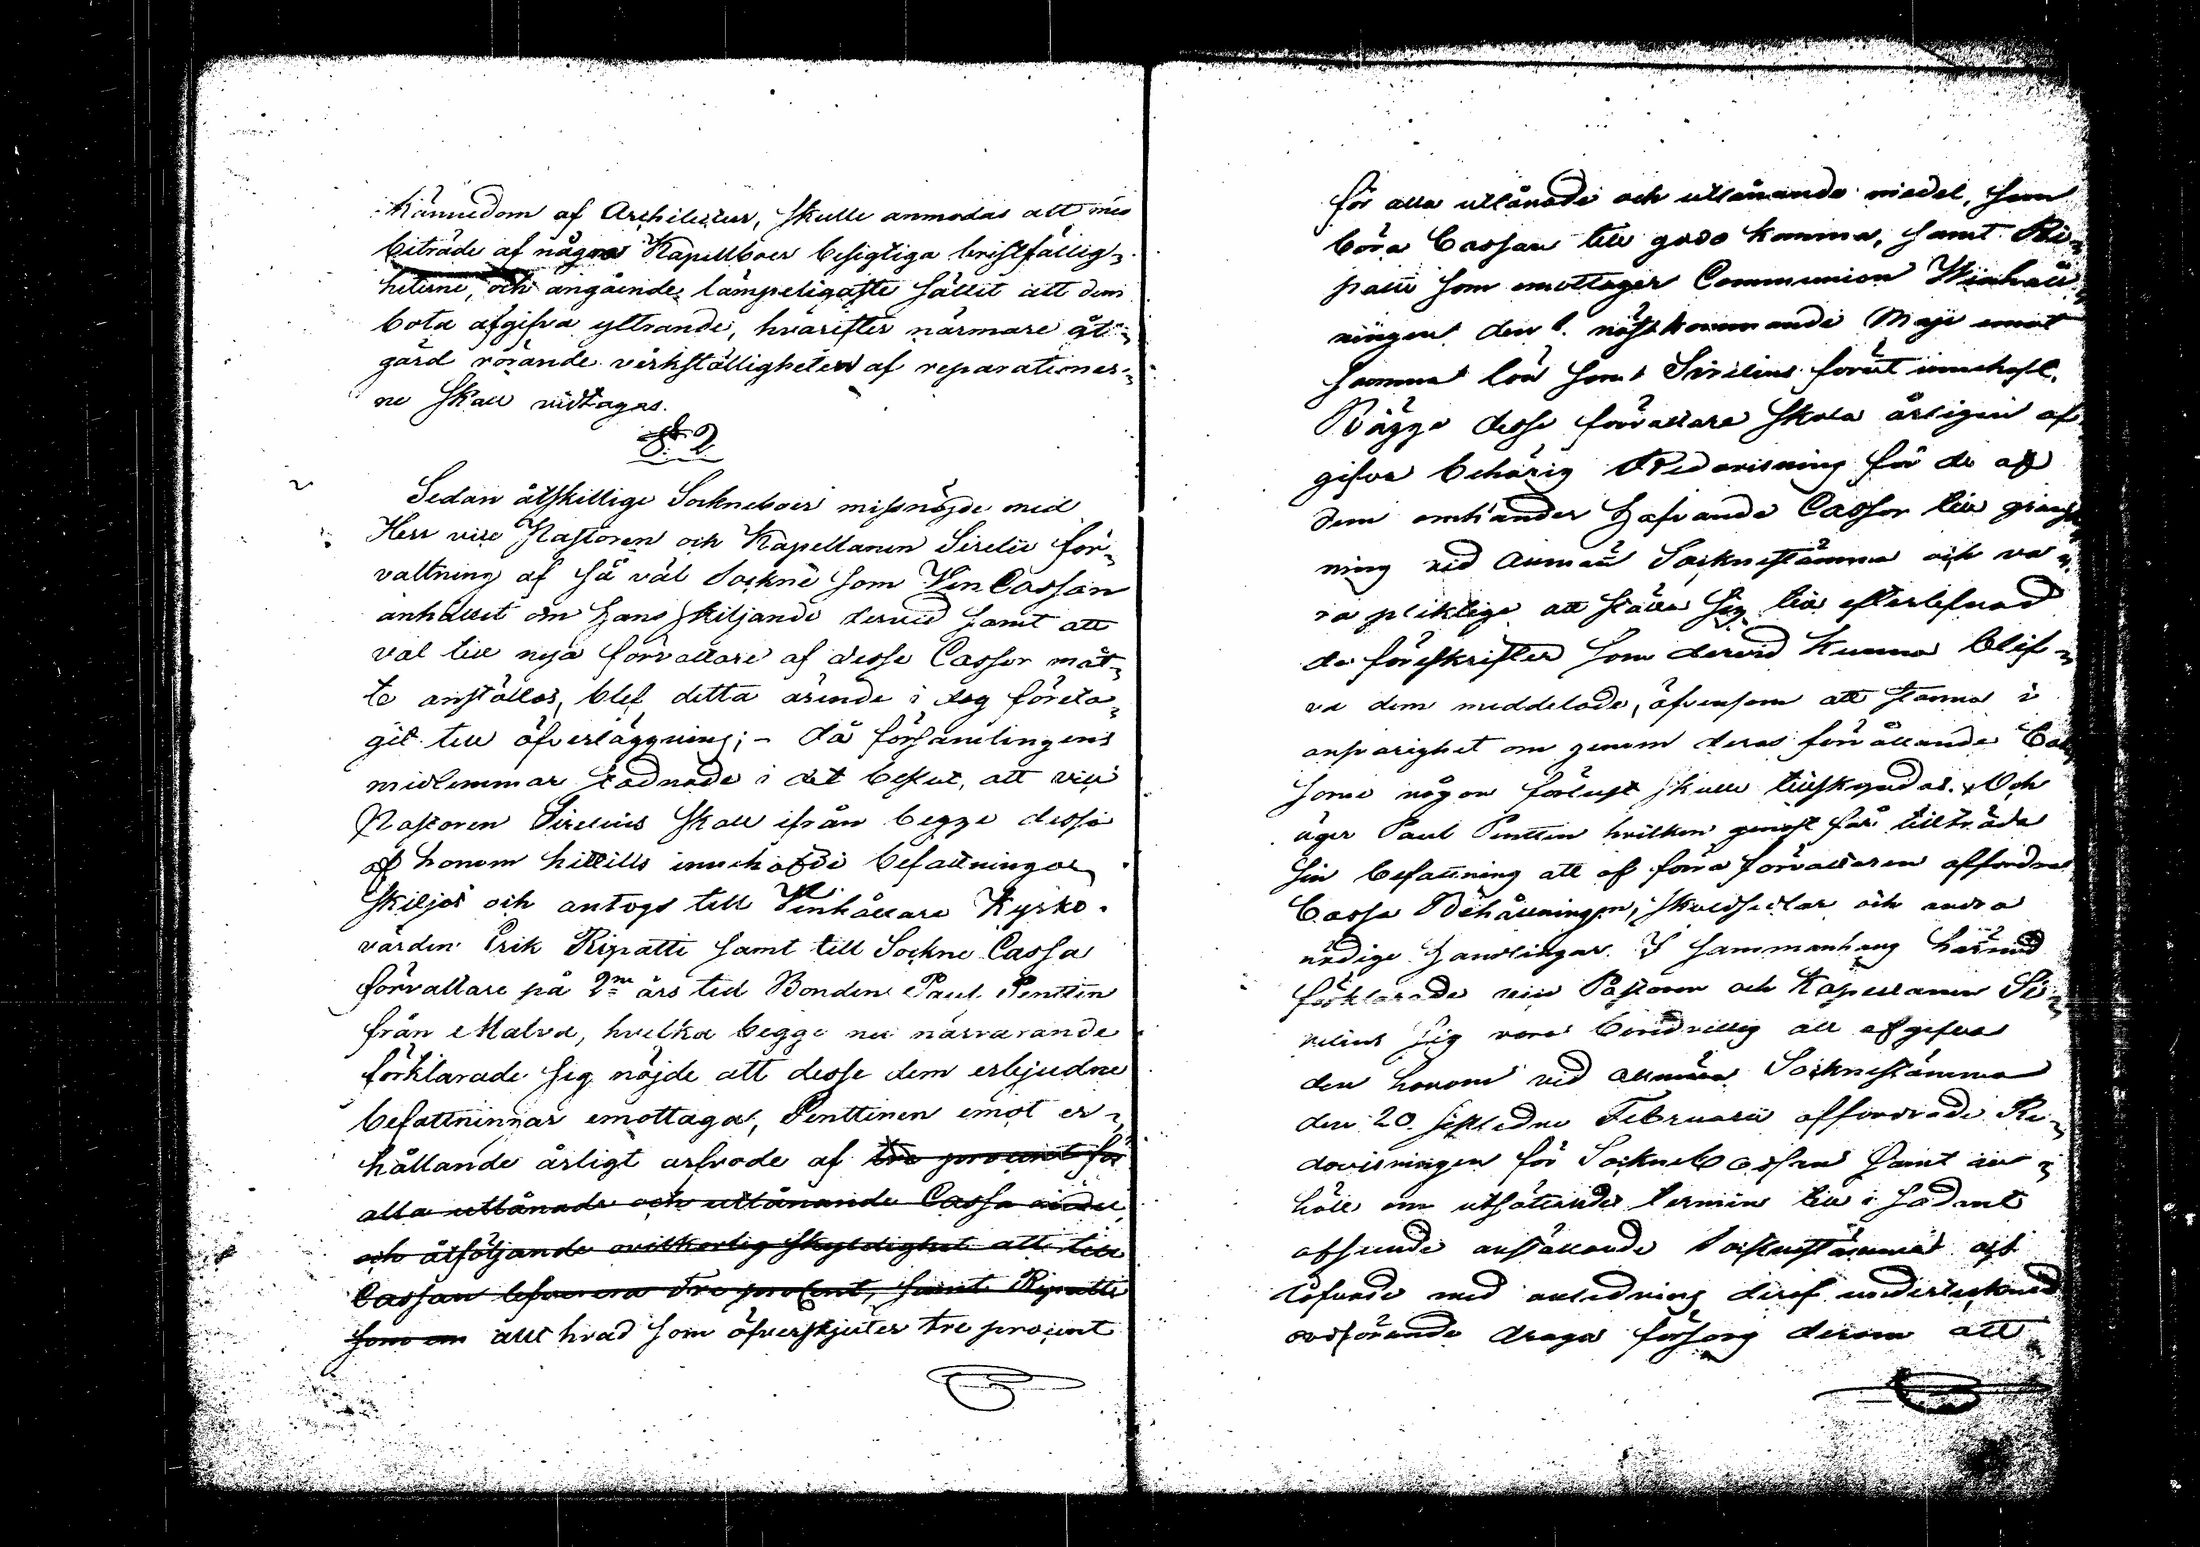 kännedom af Architectur, skulle anmodas att med
biträde af några Kapellboer besigtiga bristfällig-
heterne, och angående lämpeligaste sättet att dem
bota afgifva yttrande, hvarefter närmare åt-
gärd rörande verkställigheten af reparationer-
ne skall vidtagas.
§. 2
Sedan åtskillige Sockneboer missnöjde med
Herr vice Pastoren och Kapellanen Sirelii för-
valtning af så väl Sockne som Vin Cassan
anhållit om hans skiljande dervid samt att
val till nya förvaltare af desse Cassor måt-
te anställas, blef detta ärende i dag företa-
git till öfverläggning; - då församlingens
medlemmar stadnade i det beslut, att vice
Pastoren Sirelius skall ifrån begge dessa
af honom hittills innehafde befattningar
skiljas och antogs till Vinhållare Kyrko-
värden Erik Ripatti samt till Sockne Cassa
förvaltare på 2ne års tid Bonden Paul Penttin
från Matva, hvilka begge nu närvarande
förklarade sig nöjde att desse dem erbjudne
befattningar emottaga, Penttinen emot er-
hållande årligt arfvode af tre procent för
alla utlånade och utlånande Cassa medel
och åtföljande ovilkorlig skyldighet att till
Cassan lefverera Tre procent, samt Ripatti
som om allt hvad som öfverskjuter tre procent
för alla utlånade och utlånande medel, som
böra Cassan till godo komma, samt Ri-
patti som emottager Communion Vinhåll-
ningen den 1. nästkommande Maji emot
samma lön som Sirelius förut innehaft.
Bägge desse förvaltare skola årligen af
gifva behörig Redovisning för de af
dem omhänder hafvande Cassor till gransk
ning vid allmän Socknestämma och va-
ra pliktige att ställa sig till efterlefnad
de föreskrifter som dervid kunna blif-
va dem meddelade, äfvensom att stanna i
ansvarighet om genom deras förvållande Cas
sorne någon förlust skulle tillskyndas. Och
äger Paul Penttin hvilken genast får tillträda
sin befattning att af förra förvaltaren affordra
Cassa Behållningen, skuldsedlar och andra
nödige handlingar. I sammanhang härmed
förklarade vice Pastoren och Kapellanen Si-
relius sig vara beredvillig att afgifva
den honom vid allmän Socknestämma
den 20. sistledne Februarii affordrade Re-
dovisningen för Sockne Cassan samt an-
höll om utsättande termin till i sådant
afseende anställande Socknestämma att
lofvade med anledning deraf undertecknad
ordförande draga försorg derom att